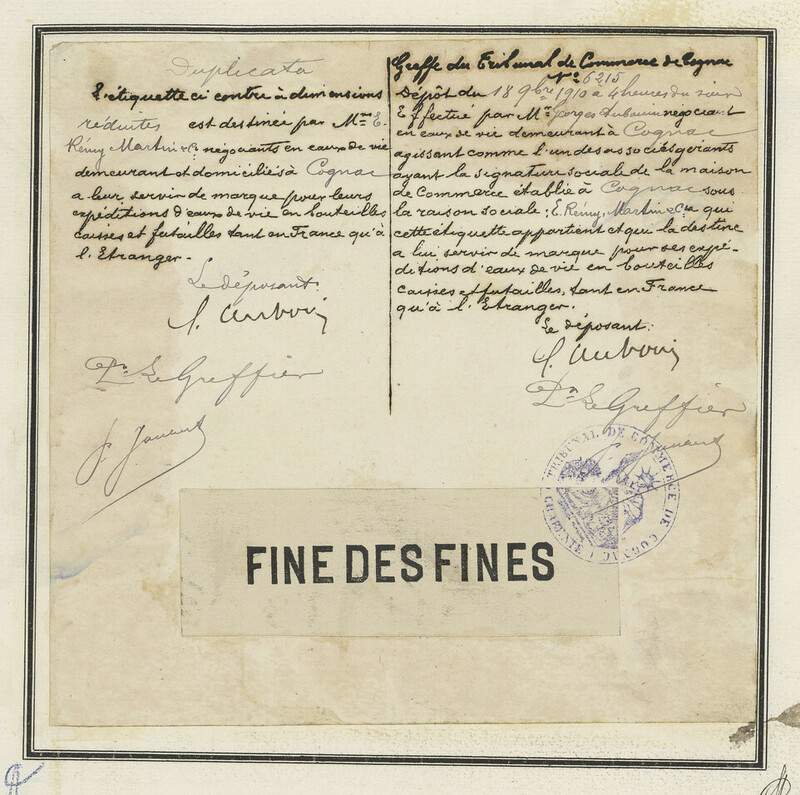 Duplicata
L'étiquette ci contre à dimensions
réduites est destinée par Mrs E.
Rémy Martin & Co négociants en eaux de vie
demeurant et domiciliés à Cognac
a leur servir de marque pour leurs
expéditions d'eaux de vie en bouteilles
caisses et futailles tant en France qu'à
l'Etranger.
Le déposant:
G. Auboin
Pr Le Greffier
Greffe du Tribunal de Commerce de Cognac
No 6215
Dépôt du 18 9bre 1910 à 4 heures du soir
Effectué par Mr Georges Auboin négociant
en eaux de vie demeurant à Cognac
agissant comme l'un des associés gérants
ayant la signature sociale de la maison
de Commerce établie à Cognac sous
la raison sociale: E. Rémy Martin & Co qui
cette étiquette appartient et qui la destine
a lui servir de marque pour ses expé-
ditions d'eaux de vie en bouteilles
caisses et futailles, tant en France
qu'à l'Etranger.
Le déposant:
G. Auboin
Pr Le Greffier
TRIBUNAL DE COMMERCE DE COGNAC
CHARENTE
FINE DES FINES